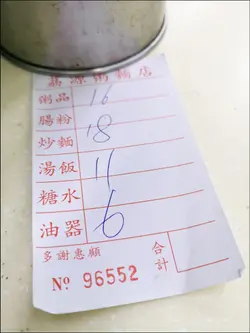 嘉源粥麵店
粥品 16
腸粉 18
炒麵
湯飯 11
糖水
油器 6
多謝惠顧 合計
№ 96552